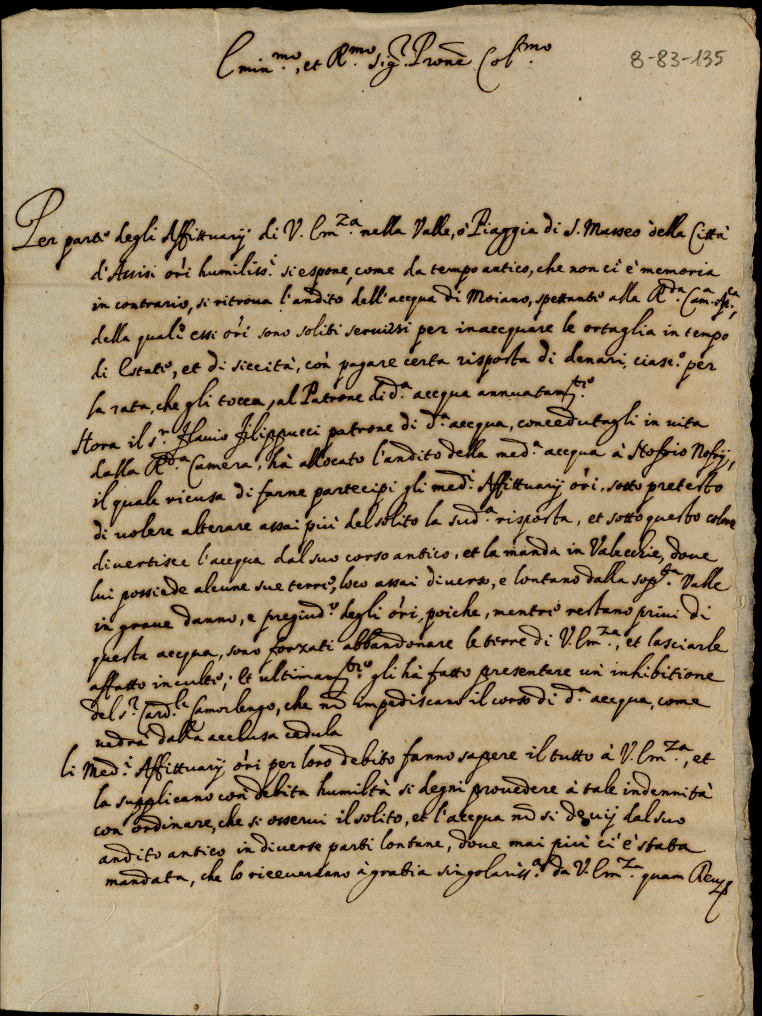 Emin.mo, et R.mo Sig.r Prone Col.mo
8-83-135
Per parte degli Affittuarij di V. Em.za nella Valle, ò Piaggia di S. Masseo della Città
d'Assisi ori humiliss.i si espone, come da tempo antico, che non ci è memoria
in contrario, si ritroua l'andito dell'acqua di Moiano, spettante alla R.da Cam.a Ap.ca,
della quale essi ori sono soliti seruirsi per inacquare le ortaglia in tempo
di Estate, et di siccità, con pagare certa risposta di denari, ciasc.o per
la rata, che gli tocca, al Patrone di d.a acqua annuatam.te
Hora il s.r Flauio Filippucci patrone di d.a acqua, concedutagli in uita
dalla R.da Camera, hà allocato l'andito della med.a acqua à Stofrio Nofrij,
il quale ricusa di farne partecipi gli med.i Affittuarij ori, sotto pretesto
di uolere alterare assai più del solito la sud.a risposta, et sotto questo colore
diuertisce l'acqua dal suo corso antico, et la manda in Valecchie, doue
lui possiede alcune sue terre, loco assai diuerso, e lontano dalla sop.ta Valle
in graue danno, e pregiud.o degli ori, poiche, mentre restano priui di
questa acqua, sono forzati abbandonare le terre di V. Em.za, et lasciarle
affatto inculte; Et ultimam.te gli hà fatto presentare un inhibitione
del s.r Card.le Camorlengo, che nō impediscano il corso di d.a acqua, come
uedrà dalla acclusa cedula
li Med.i Affittuarij ori per loro debito fanno sapere il tutto à V. Em.za, et
la supplicano con debita humiltà si degni prouedere à tale indennità
con ordinare, che si osserui il solito, et l'acqua nō si deuij dal suo
andito antico in diuerse parti lontane, doue mai più ci è stata
mandata, che lo riceueranno à gratia singolariss.a da V. Em.za quam Deus